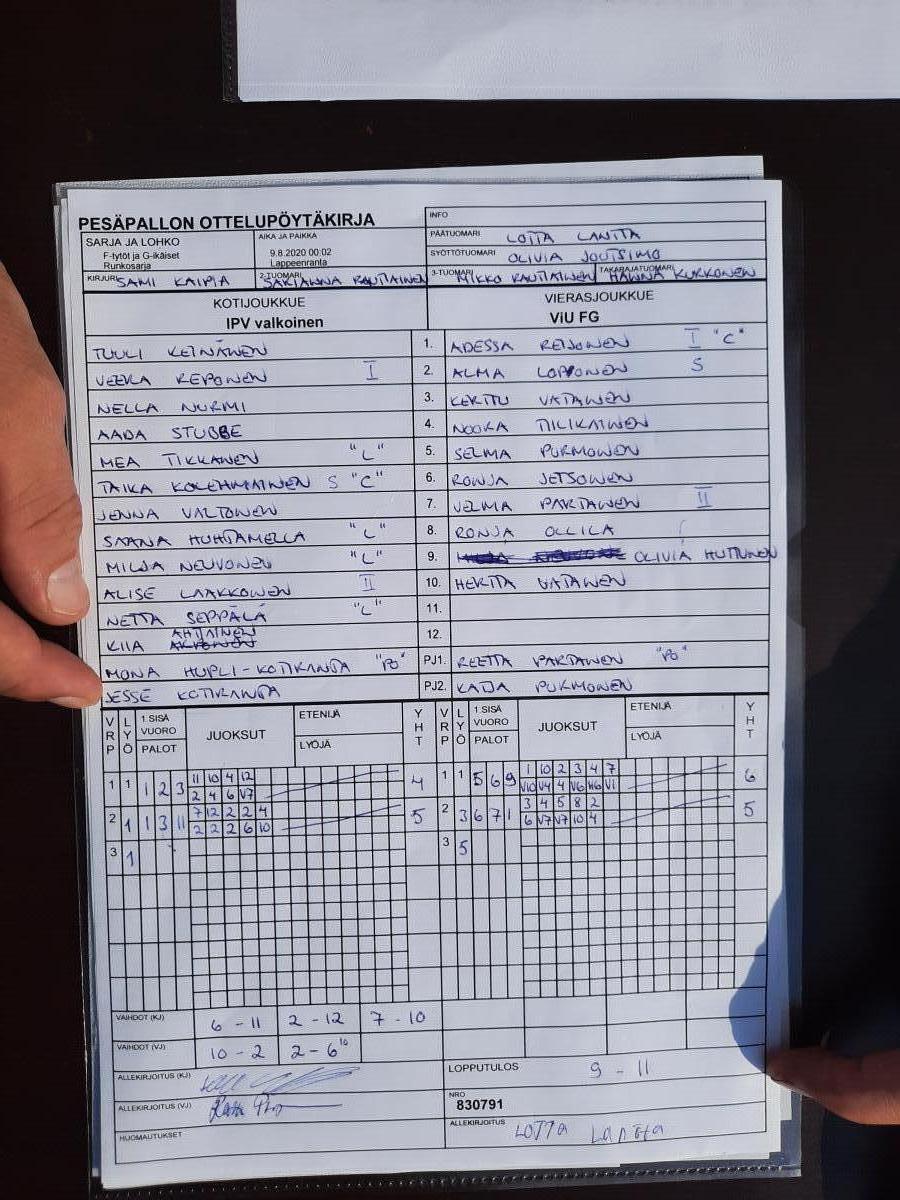 PESÄPALLON OTTELUPÖYTÄKIRJA
INFO
SARJA JA LOHKO
F-tytöt ja G-ikäiset
Runkosarja
AIKA JA PAIKKA
9.8.2020 00:02
Lappeenranta
PÄÄTUOMARI LOTTA LANTTA
SYÖTTÖTUOMARI OLIVIA JOUTSIMO
KIRJURI SAMI KAIPIA
2-TUOMARI RAUTIAINEN
3-TUOMARI MIKKO RAUTIAINEN
TAKARAJATUOMARI HANNA KUKKONEN
KOTIJOUKKUE
IPV valkoinen
VIERASJOUKKUE
ViU FG
TUULI KEINÄNEN 1. ADESSA REIJONEN I "C"
VEERA REPONEN I 2. ALMA LOPPONEN S
NELLA NURMI 3. KERTTU VATANEN
AADA STUBBE 4. NOORA TIILIKAINEN
MEA TIKKANEN "L" 5. SELMA PURMONEN
TAIKA KOLEHMAINEN S "C" 6. RONJA JETSONEN
JENNA VALTONEN 7. VELMA PARTANEN II
SAANA HUHTAMELLA "L" 8. RONJA OLLILA
MILJA NEUVONEN "L" 9. OLIVIA HUTTUNEN
ALISE LAAKKONEN II 10. HERTTA VATANEN
NETTA SEPPÄLÄ "L" 11.
KIIA AHTIAINEN 12.
MONA HUPLI-KOTIRANTA "PÖ" PJ1. REETTA PARTANEN "PÖ"
JESSE KOTIRANTA PJ2. KATJA PURMONEN
VRP LYÖ 1.SISÄ VUORO PALOT JUOKSUT ETENIJÄ LYÖJÄ YHT VRP LYÖ 1.SISÄ VUORO PALOT JUOKSUT ETENIJÄ LYÖJÄ YHT
1 1 1 2 3 11 10 4 12 4 1 1 5 6 9 1 10 2 3 4 7 6
2 4 6 V7 V10 V4 4 V6 V6 V1
2 1 1 3 11 7 12 2 2 4 5 2 3 6 7 1 3 4 5 8 2 5
2 2 2 6 10 6 V7 V7 10 4
3 1 3 5
VAIHDOT (KJ) 6 - 11 2 - 12 7 - 10
VAIHDOT (VJ) 10 - 2 2 - 6 10
ALLEKIRJOITUS (KJ)
LOPPUTULOS 9 - 11
ALLEKIRJOITUS (VJ)
NRO
830791
HUOMAUTUKSET
ALLEKIRJOITUS LOTTA Lantta